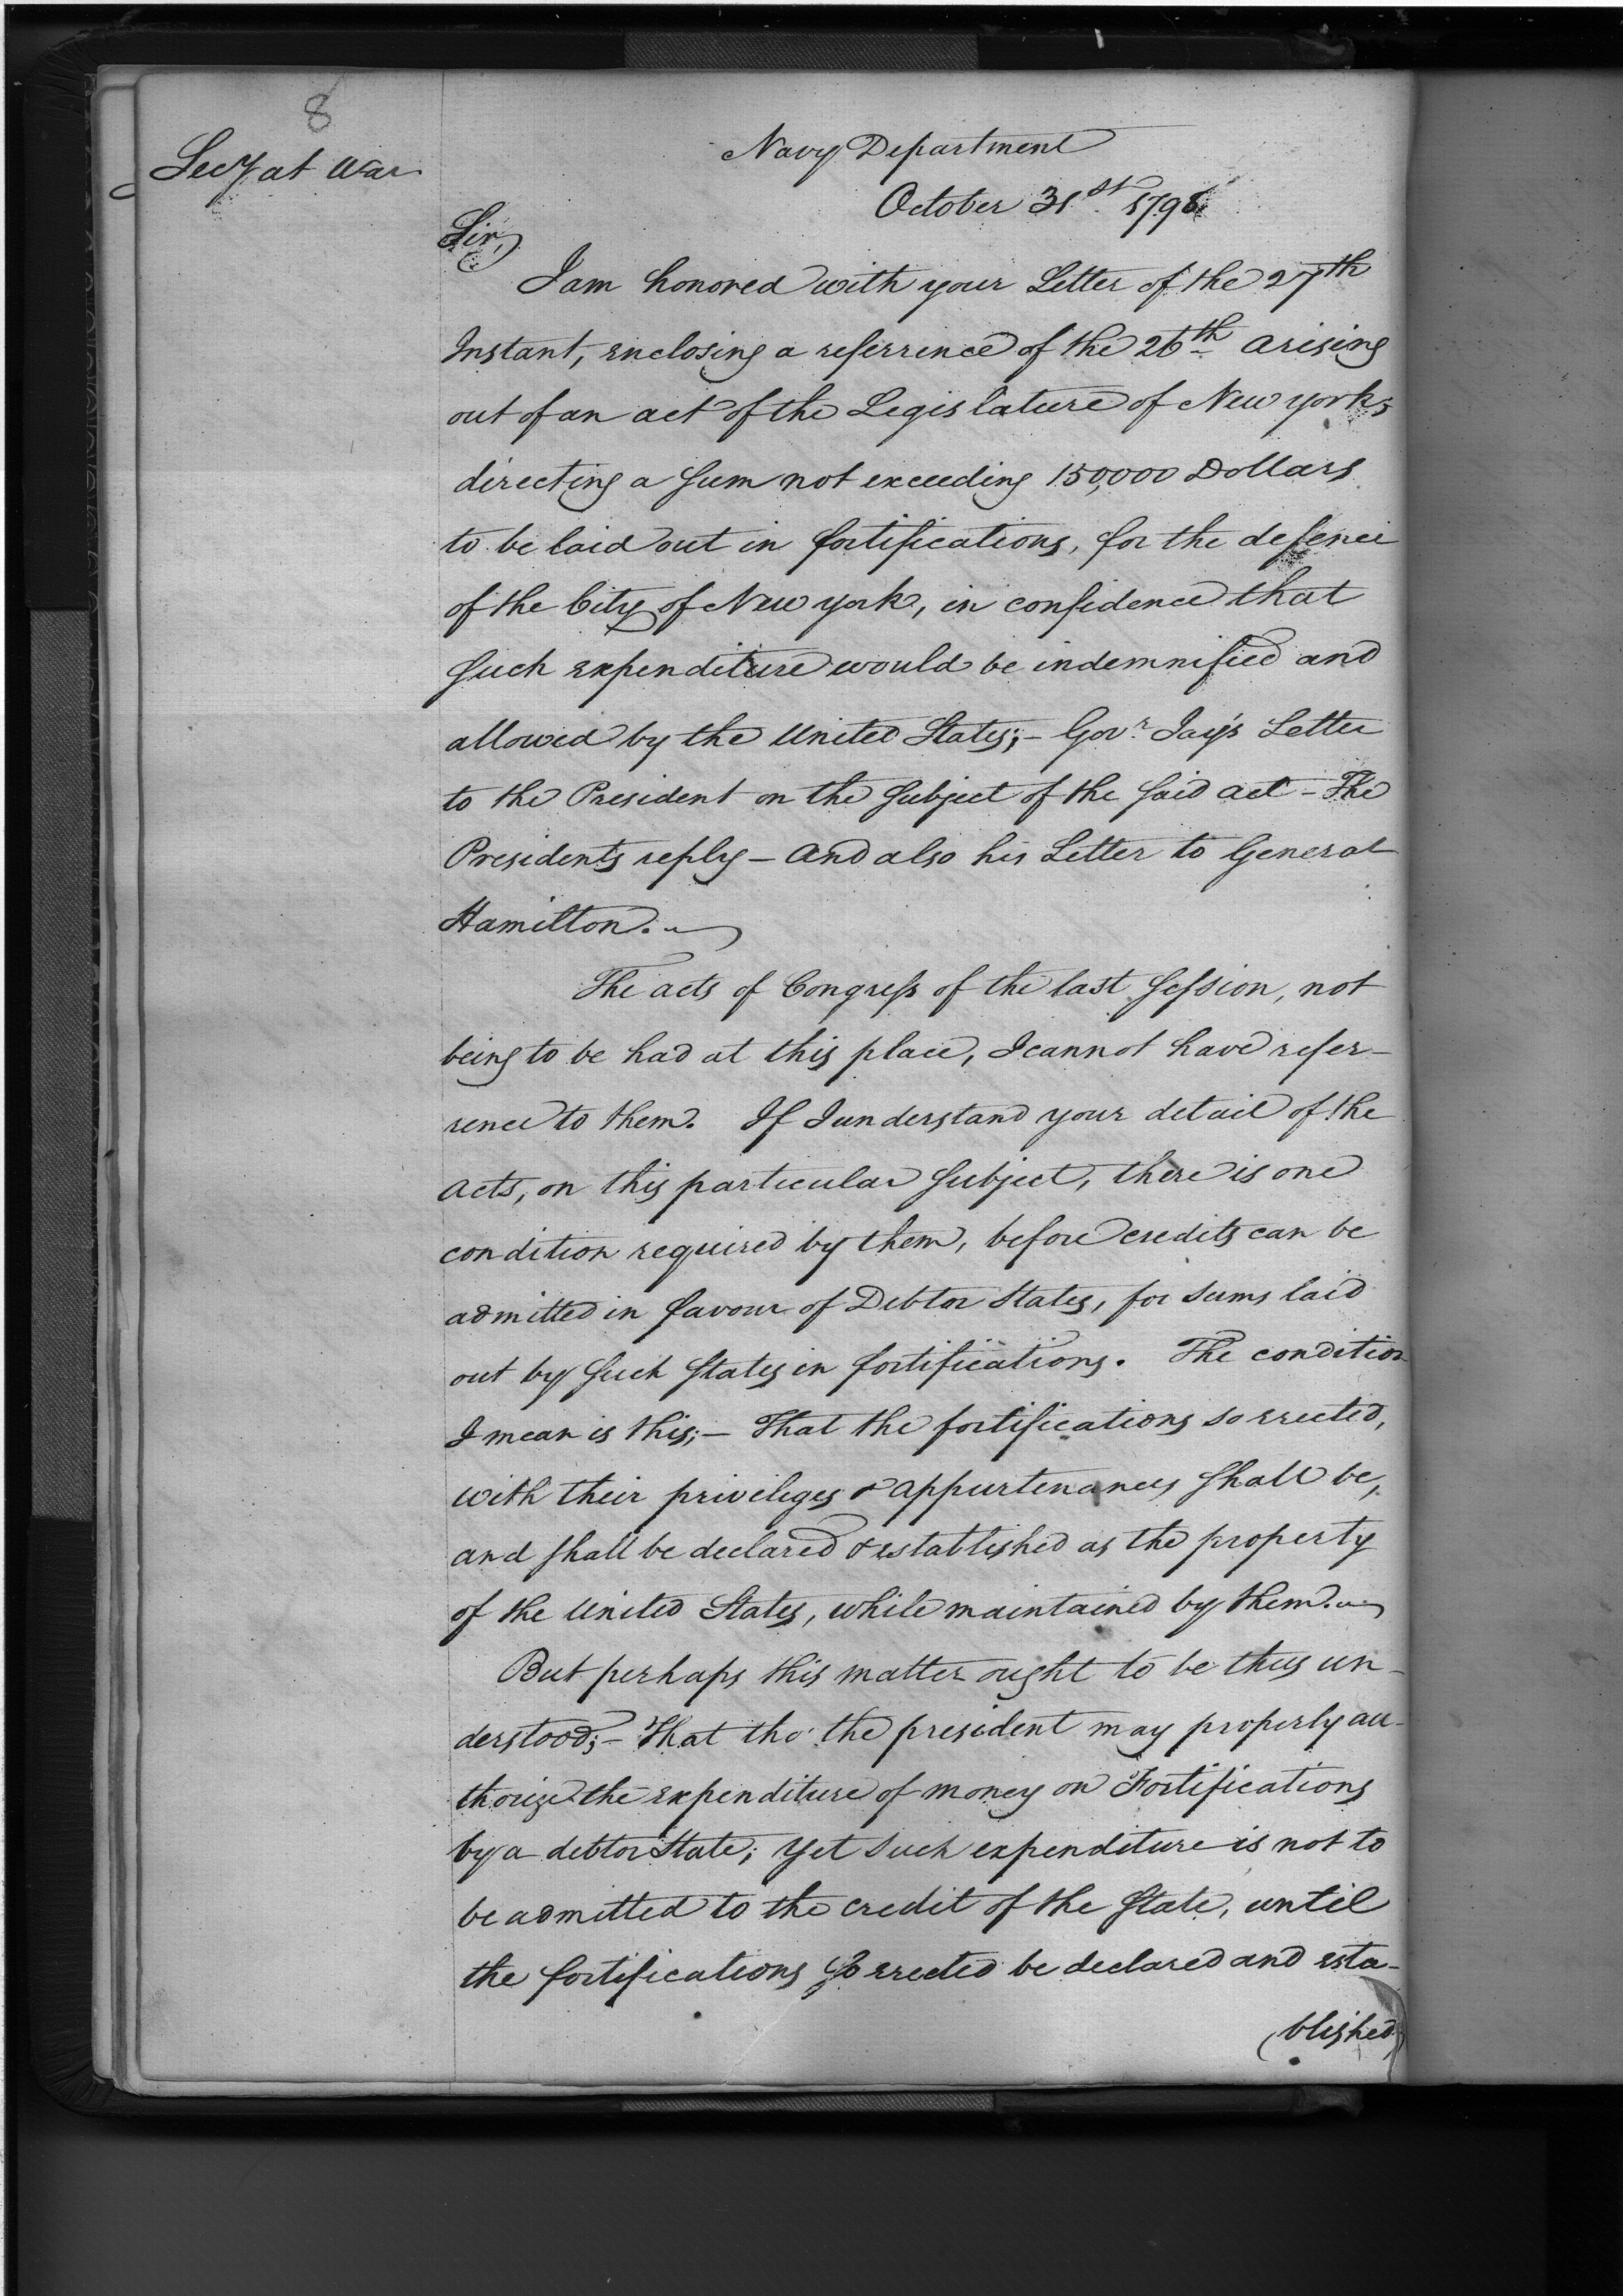 8
Secy at War
Navy Department
October 31st 1798
Sir,
I am honored with your Letter of the 27th
Instant, enclosing a referrence of the 26th arising
out of an act of the Legislature of New york,
directing a sum not exceeding 150,000 Dollars
to be laid out in fortifications, for the defence
of the City of New york, in confidence that
such expenditure would be indemnified and
allowed by the United States;- Govr Jay's Letter
to the President on the subject of the said act - The
Presidents reply - and also his Letter to General
Hamilton.
The acts of Congress of the last session, not
being to be had at this place, I cannot have refer-
rence to them. If I understand your detail of the
acts, on this particular subject, there is one
condition required by them, before credits can be
admitted in favour of Debtor States, for sums laid
out by such states in fortifications. The condition
I mean is this;- That the fortifications so erected,
with their privileges & appurtenances shall be,
and shall be declared & established as the property
of the United States, while maintained by them.
But perhaps this matter ought to be thus un-
derstood;- That tho' the president may properly au-
thorize the expenditure of money on Fortifications
by a debtor State; yet such expenditure is not to
be admitted to the credit of the state, until
the fortifications so erected be declared and esta-
(blished)